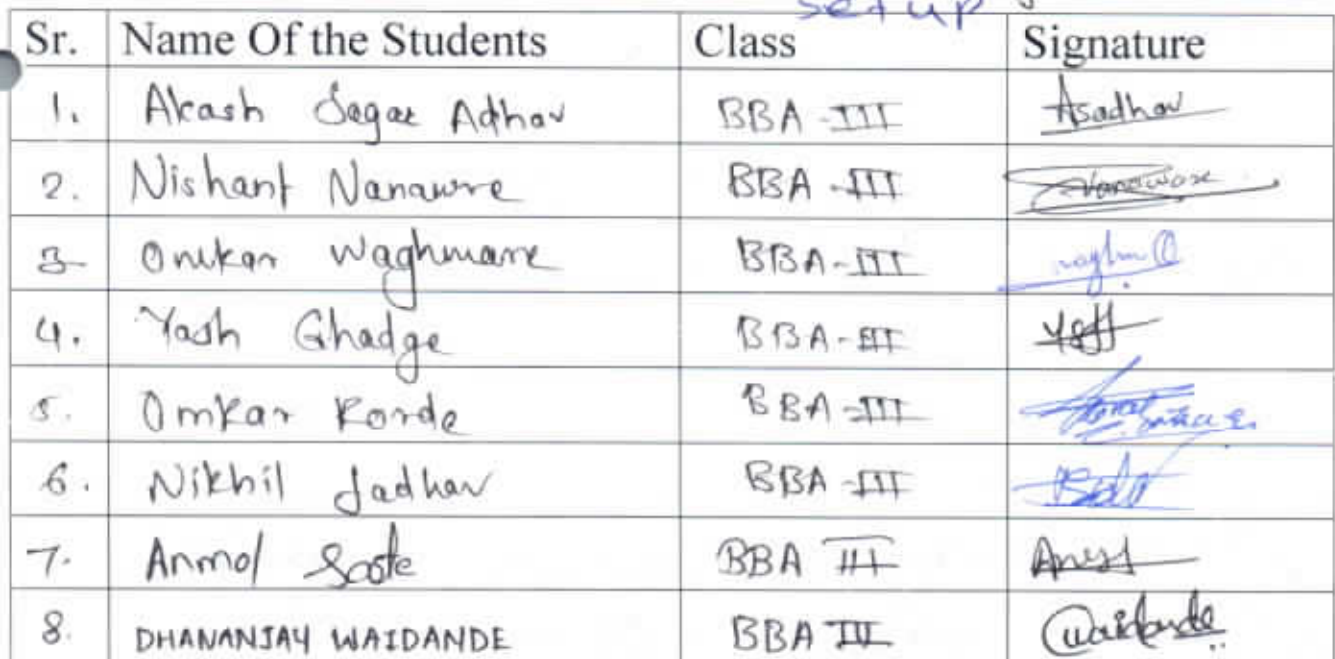 set up
Sr. Name Of the Students Class Signature
1. Akash Sagar Adhav BBA-III Asadhav
2. Nishant Nanawre BBA-III Nanaware
3 Omkar Waghmare BBA-III
4. Yash Ghadge BBA-III
5. Omkar Korde BBA-III
6. Nikhil Jadhav BBA-III
7. Anmol BBA III
8. DHANANJAY WAIDANDE BBA III Waidande